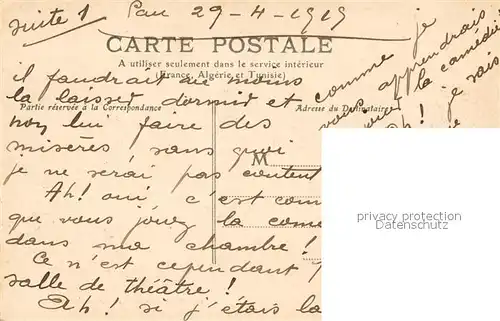 suite 1 Pau 29-4-1919
CARTE POSTALE
A utiliser seulement dans le service intérieur
(France, Algérie et Tunisie)
Partie réservée à la Correspondance
Adresse du Destinataire
M
il faudrait au moins
la laisser dormir et
non lui faire des
misères, sans quoi
je ne serai pas content
Ah! oui, c'est com
que vous jouez la come
dans ma chambre!
Ce n'est cependant
salle de théâtre!
Ah! si j'étais la
comme je
vous apprendrais
la comédie
Ah! je sais
privacy protection
Datenschutz